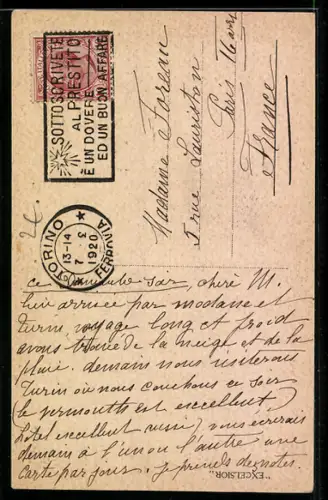 SOTTOSCRIVETE
AL PRESTITO
È UN DOVERE
ED UN BUON AFFARE
TORINO
13-14
7 2
1920
FERROVIA
Madame Foreau
5 rue Lauriston
Paris 16
France
ce soir, chère M.
arrivée par modane et
turin, voyage long et froid
avons trouvé de la neige et de la
pluie. demain nous visiterons
Turin où nous couchons ce soir
(le vermouth est excellent)
hôtel excellent vous écrirai
demain à l'un ou l'autre une
carte par jour. je prends des notes.
"EXCELSIOR"